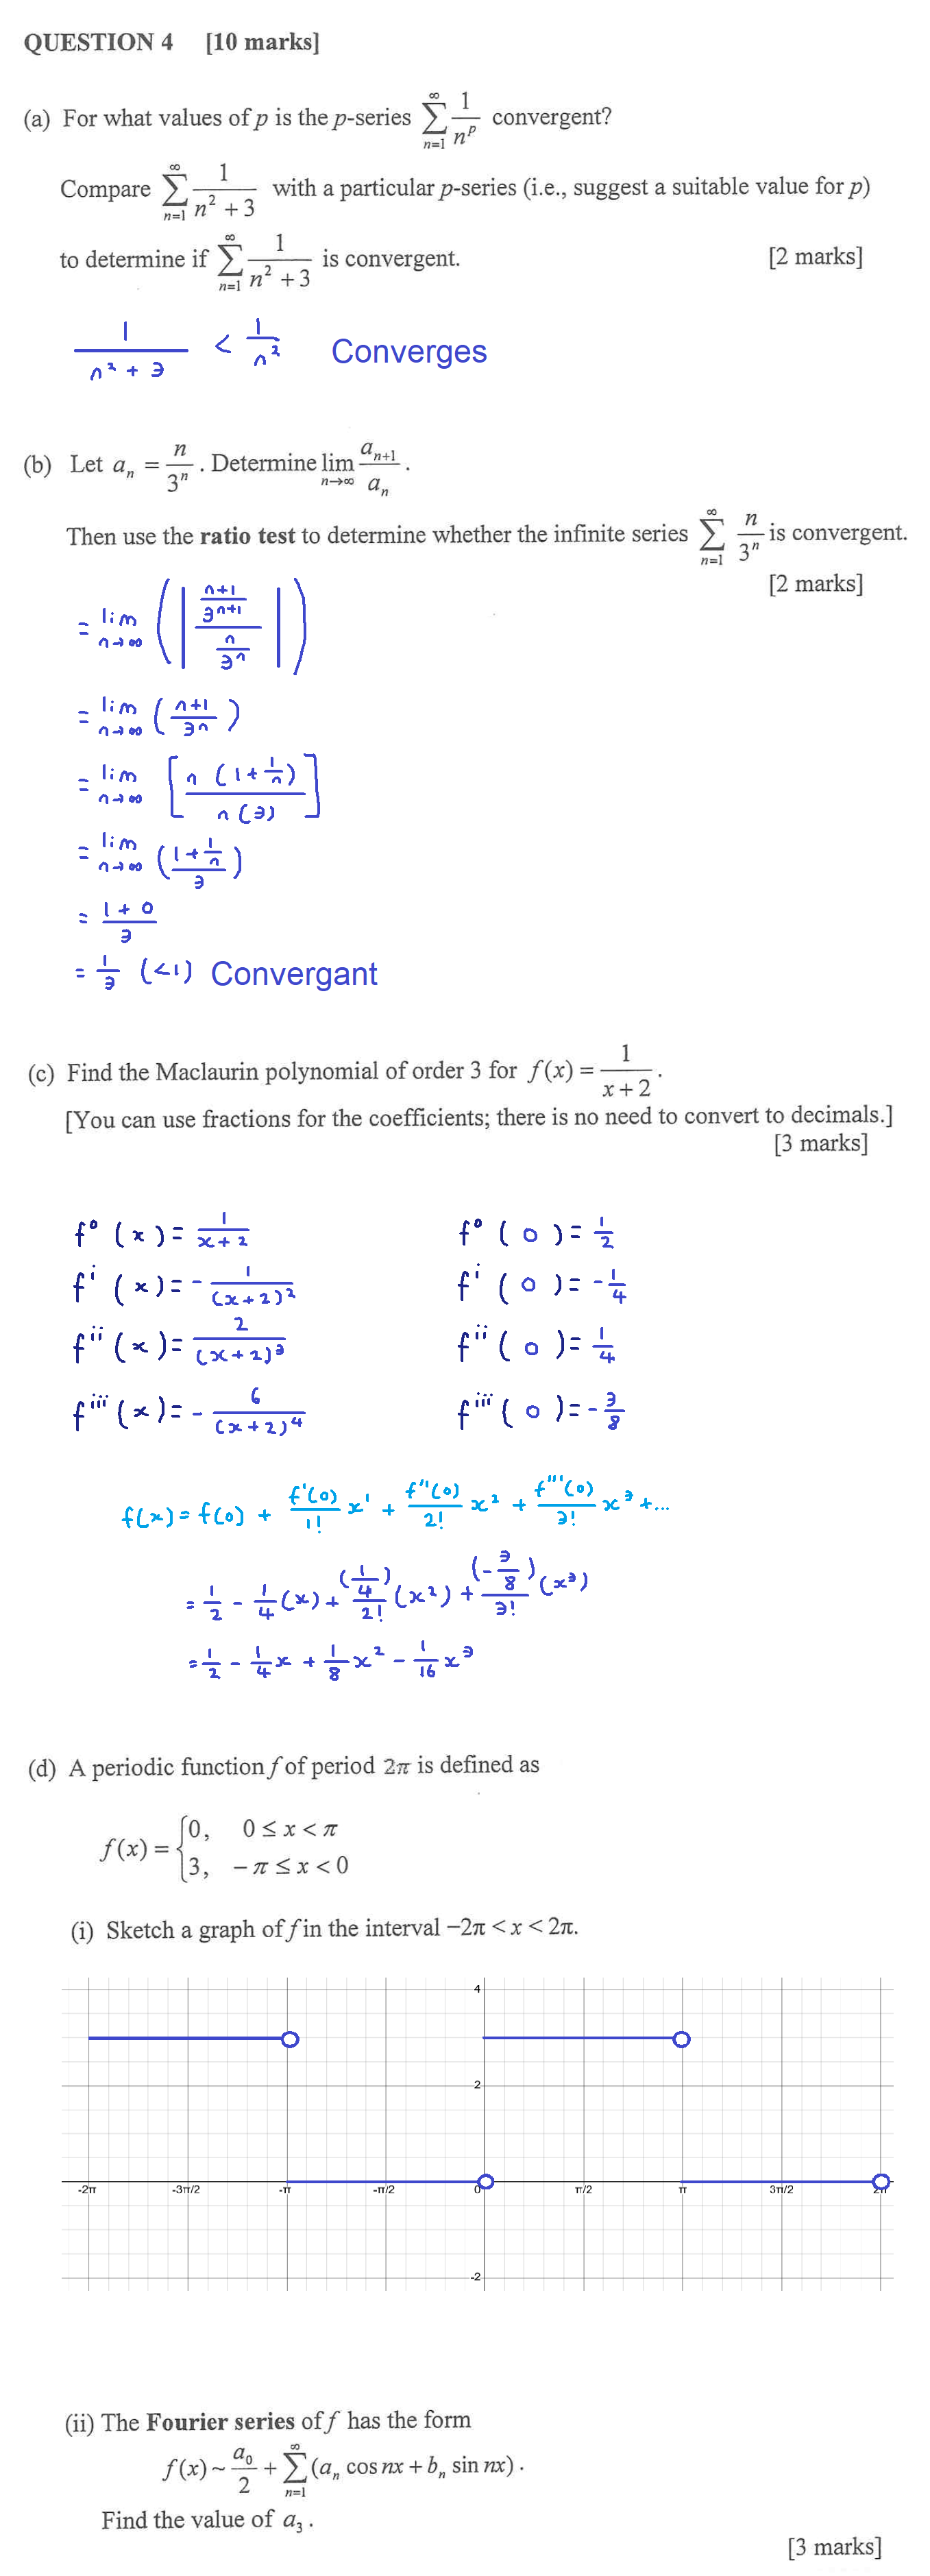 QUESTION 4 [10 marks]
(a) For what values of p is the p-series \sum_{n=1}^{∞} \frac{1}{n^p} convergent?
Compare \sum_{n=1}^{∞} \frac{1}{n^2 + 3} with a particular p-series (i.e., suggest a suitable value for p)
to determine if \sum_{n=1}^{∞} \frac{1}{n^2 + 3} is convergent. [2 marks]
\frac{1}{n^2 + 3} < \frac{1}{n^2} Converges
(b) Let a_n = \frac{n}{3^n}. Determine \lim_{n→∞} \frac{a_{n+1}}{a_n}.
Then use the ratio test to determine whether the infinite series \sum_{n=1}^{∞} \frac{n}{3^n} is convergent.
[2 marks]
= \lim_{n→∞} ( | \frac{\frac{n+1}{3^{n+1}}}{\frac{n}{3^n}} | )
= \lim_{n→∞} ( \frac{n+1}{3n} )
= \lim_{n→∞} [ \frac{n(1+\frac{1}{n})}{n(3)} ]
= \lim_{n→∞} ( \frac{1+\frac{1}{n}}{3} )
= \frac{1+0}{3}
= \frac{1}{3} (<1) Convergant
(c) Find the Maclaurin polynomial of order 3 for f(x) = \frac{1}{x+2}.
[You can use fractions for the coefficients; there is no need to convert to decimals.]
[3 marks]
f^0(x) = \frac{1}{x+2} f^0(0) = \frac{1}{2}
f^i(x) = -\frac{1}{(x+2)^2} f^i(0) = -\frac{1}{4}
f^{ii}(x) = \frac{2}{(x+2)^3} f^{ii}(0) = \frac{1}{4}
f^{iii}(x) = -\frac{6}{(x+2)^4} f^{iii}(0) = -\frac{3}{8}
f(x) = f(0) + \frac{f'(0)}{1!} x^1 + \frac{f''(0)}{2!} x^2 + \frac{f'''(0)}{3!} x^3 + ...
= \frac{1}{2} - \frac{1}{4}(x) + \frac{(\frac{1}{4})}{2!}(x^2) + \frac{(-\frac{3}{8})}{3!}(x^3)
= \frac{1}{2} - \frac{1}{4}x + \frac{1}{8}x^2 - \frac{1}{16}x^3
(d) A periodic function f of period 2π is defined as
f(x) = { 0, 0 ≤ x < π
3, -π ≤ x < 0
(i) Sketch a graph of f in the interval −2π < x < 2π.
4
2
-2π -3π/2 -π -π/2 0 π/2 π 3π/2 2π
-2
(ii) The Fourier series of f has the form
f(x) ~ \frac{a_0}{2} + \sum_{n=1}^{∞} (a_n cos nx + b_n sin nx).
Find the value of a_3.
[3 marks]